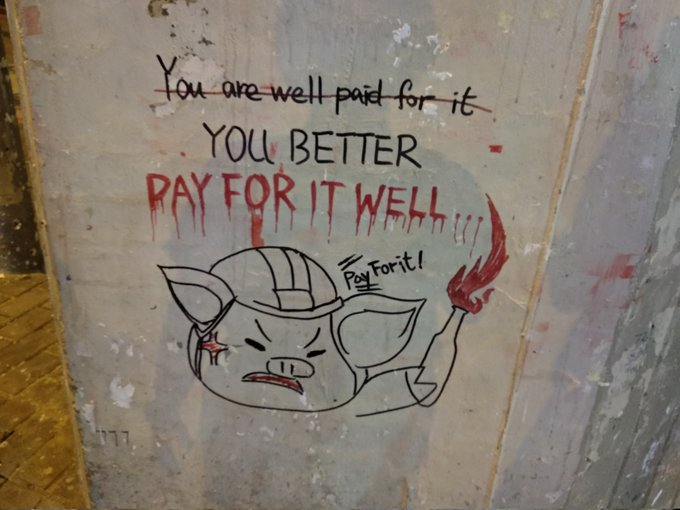 You are well paid for it
YOU BETTER
PAY FOR IT WELL...
Pay For it!